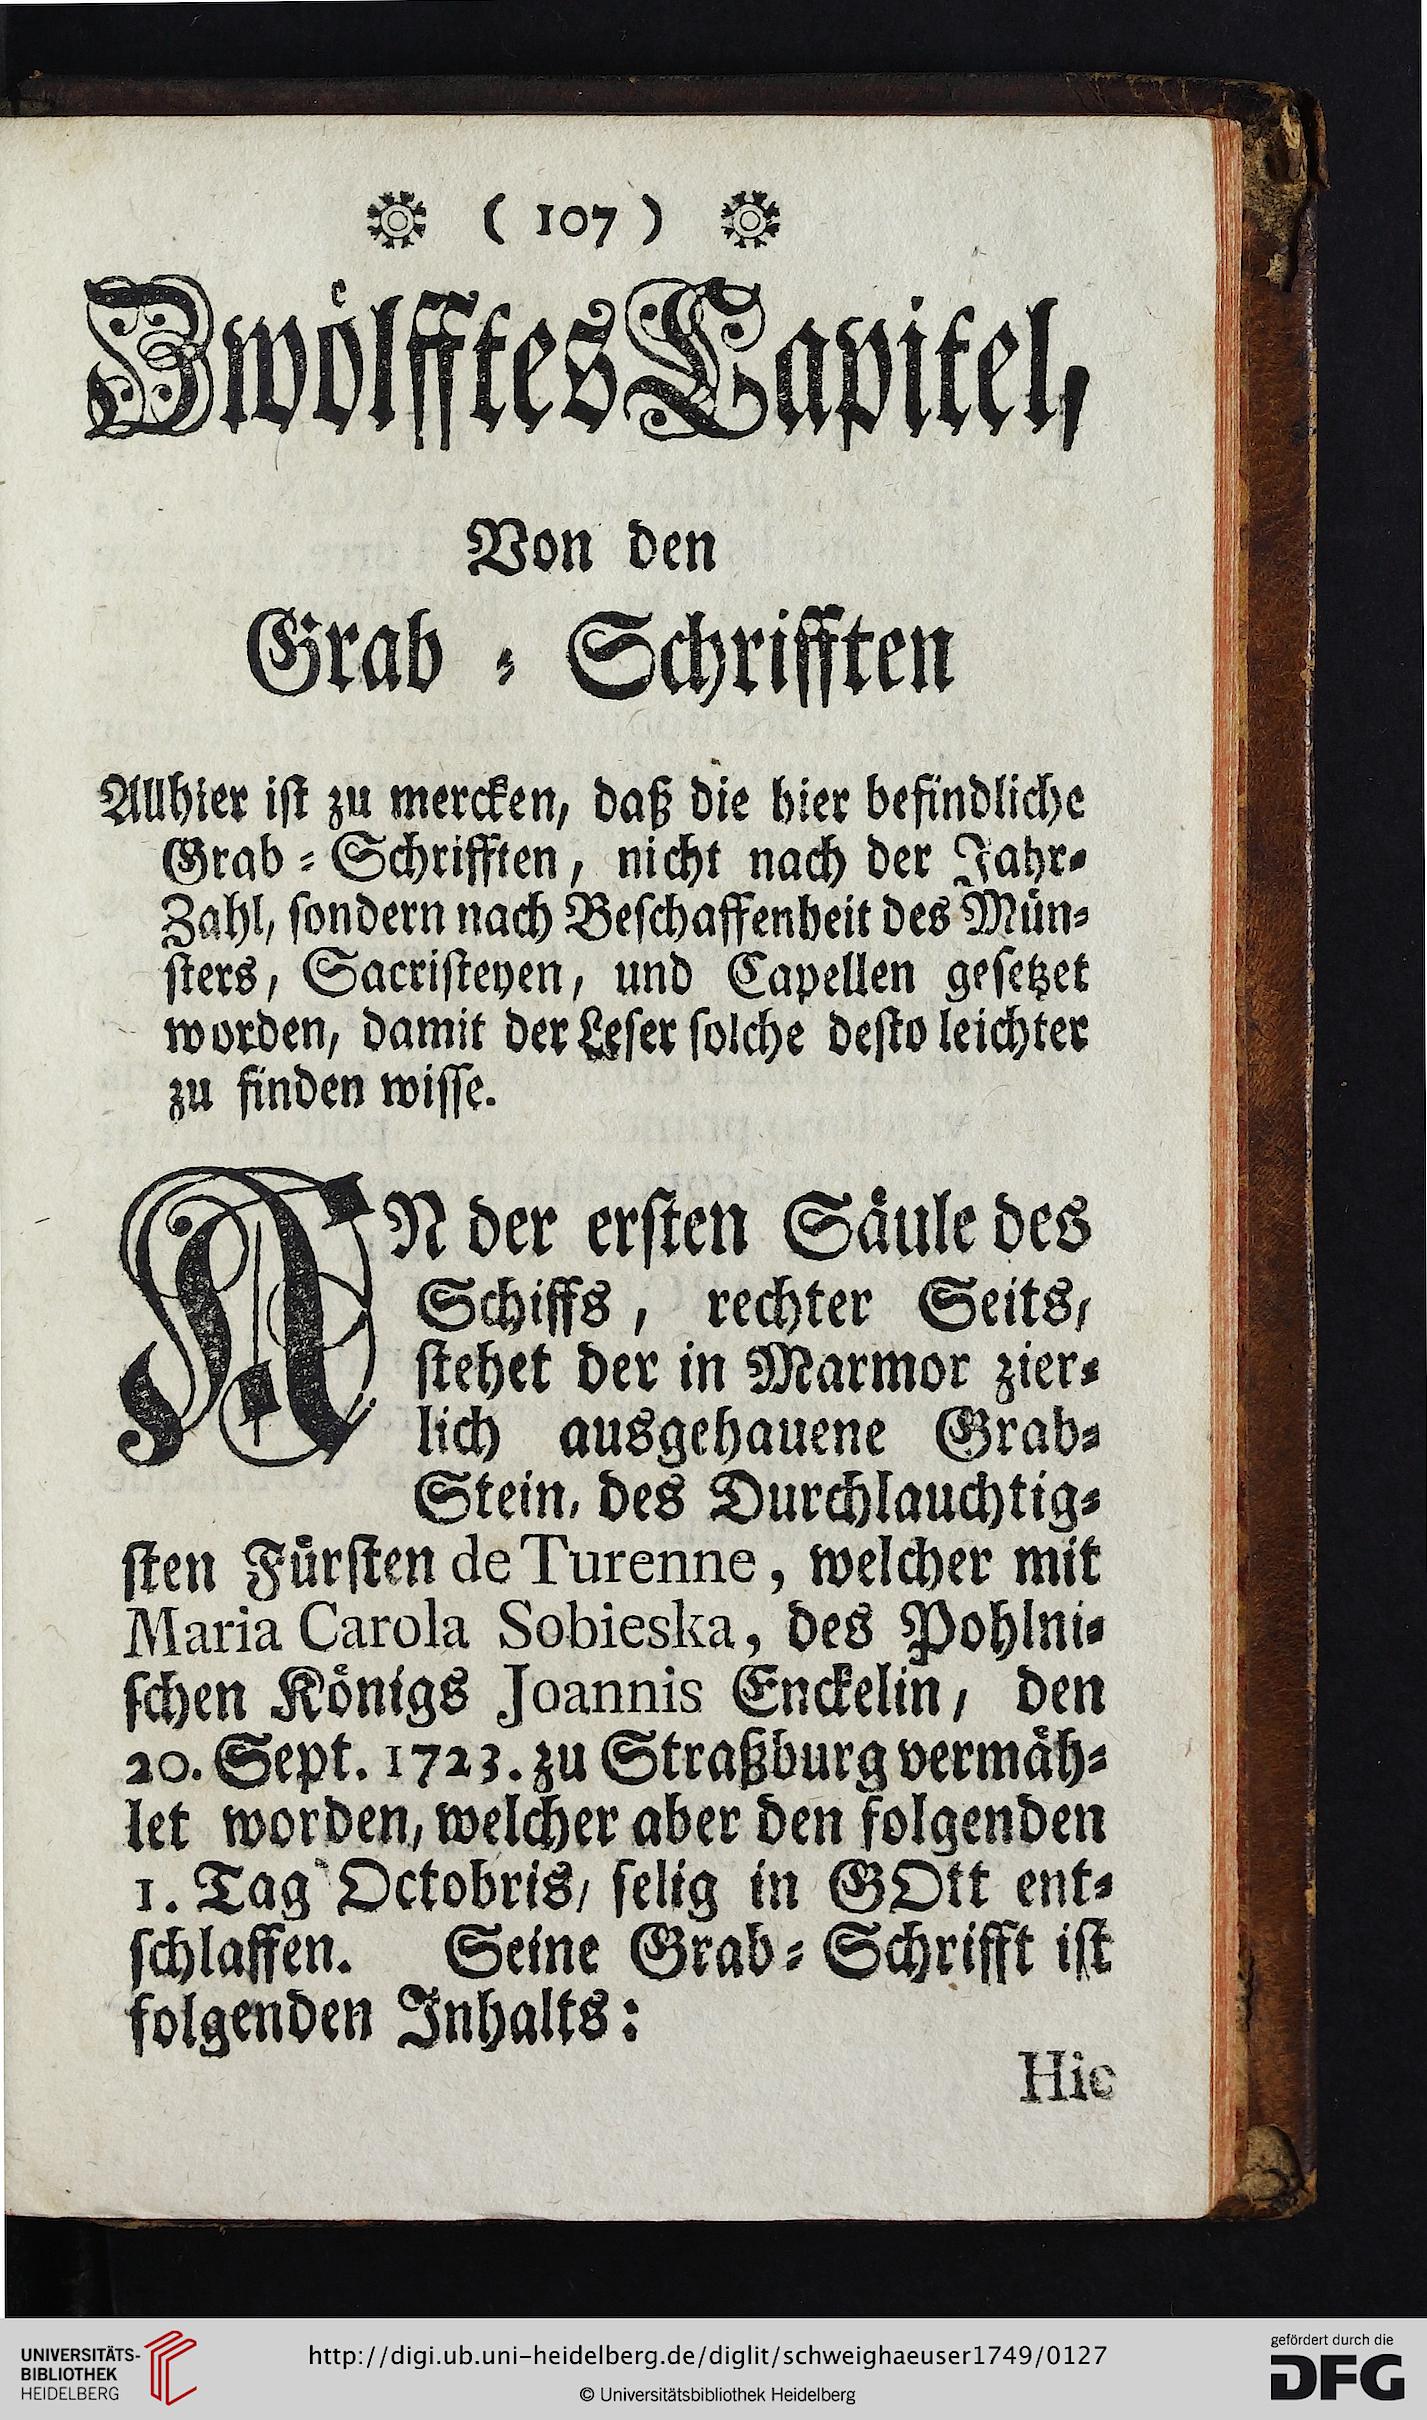 ( 107 )
Zwölfftes Capitel,
Von den
Grab = Schrifften
Allhier ist zu mercken, daß die hier befindliche
Grab = Schrifften, nicht nach der Jahr=
Zahl, sondern nach Beschaffenheit des Mün=
sters, Sacristeyen, und Capellen gesetzet
worden, damit der Leser solche desto leichter
zu finden wisse.
AN der ersten Säule des
Schiffs, rechter Seits,
stehet der in Marmor zier=
lich ausgehauene Grab=
Stein, des Durchlauchtig=
sten Fürsten de Turenne, welcher mit
Maria Carola Sobieska, des Pohlni=
schen Königs Joannis Enckelin, den
20. Sept. 1723. zu Straßburg vermäh=
let worden, welcher aber den folgenden
1. Tag Octobris, selig in GOtt ent=
schlaffen. Seine Grab = Schrifft ist
folgenden Inhalts:
Hic
UNIVERSITÄTS-
BIBLIOTHEK
HEIDELBERG
http://digi.ub.uni-heidelberg.de/diglit/schweighaeuser1749/0127
© Universitätsbibliothek Heidelberg
gefördert durch die
DFG